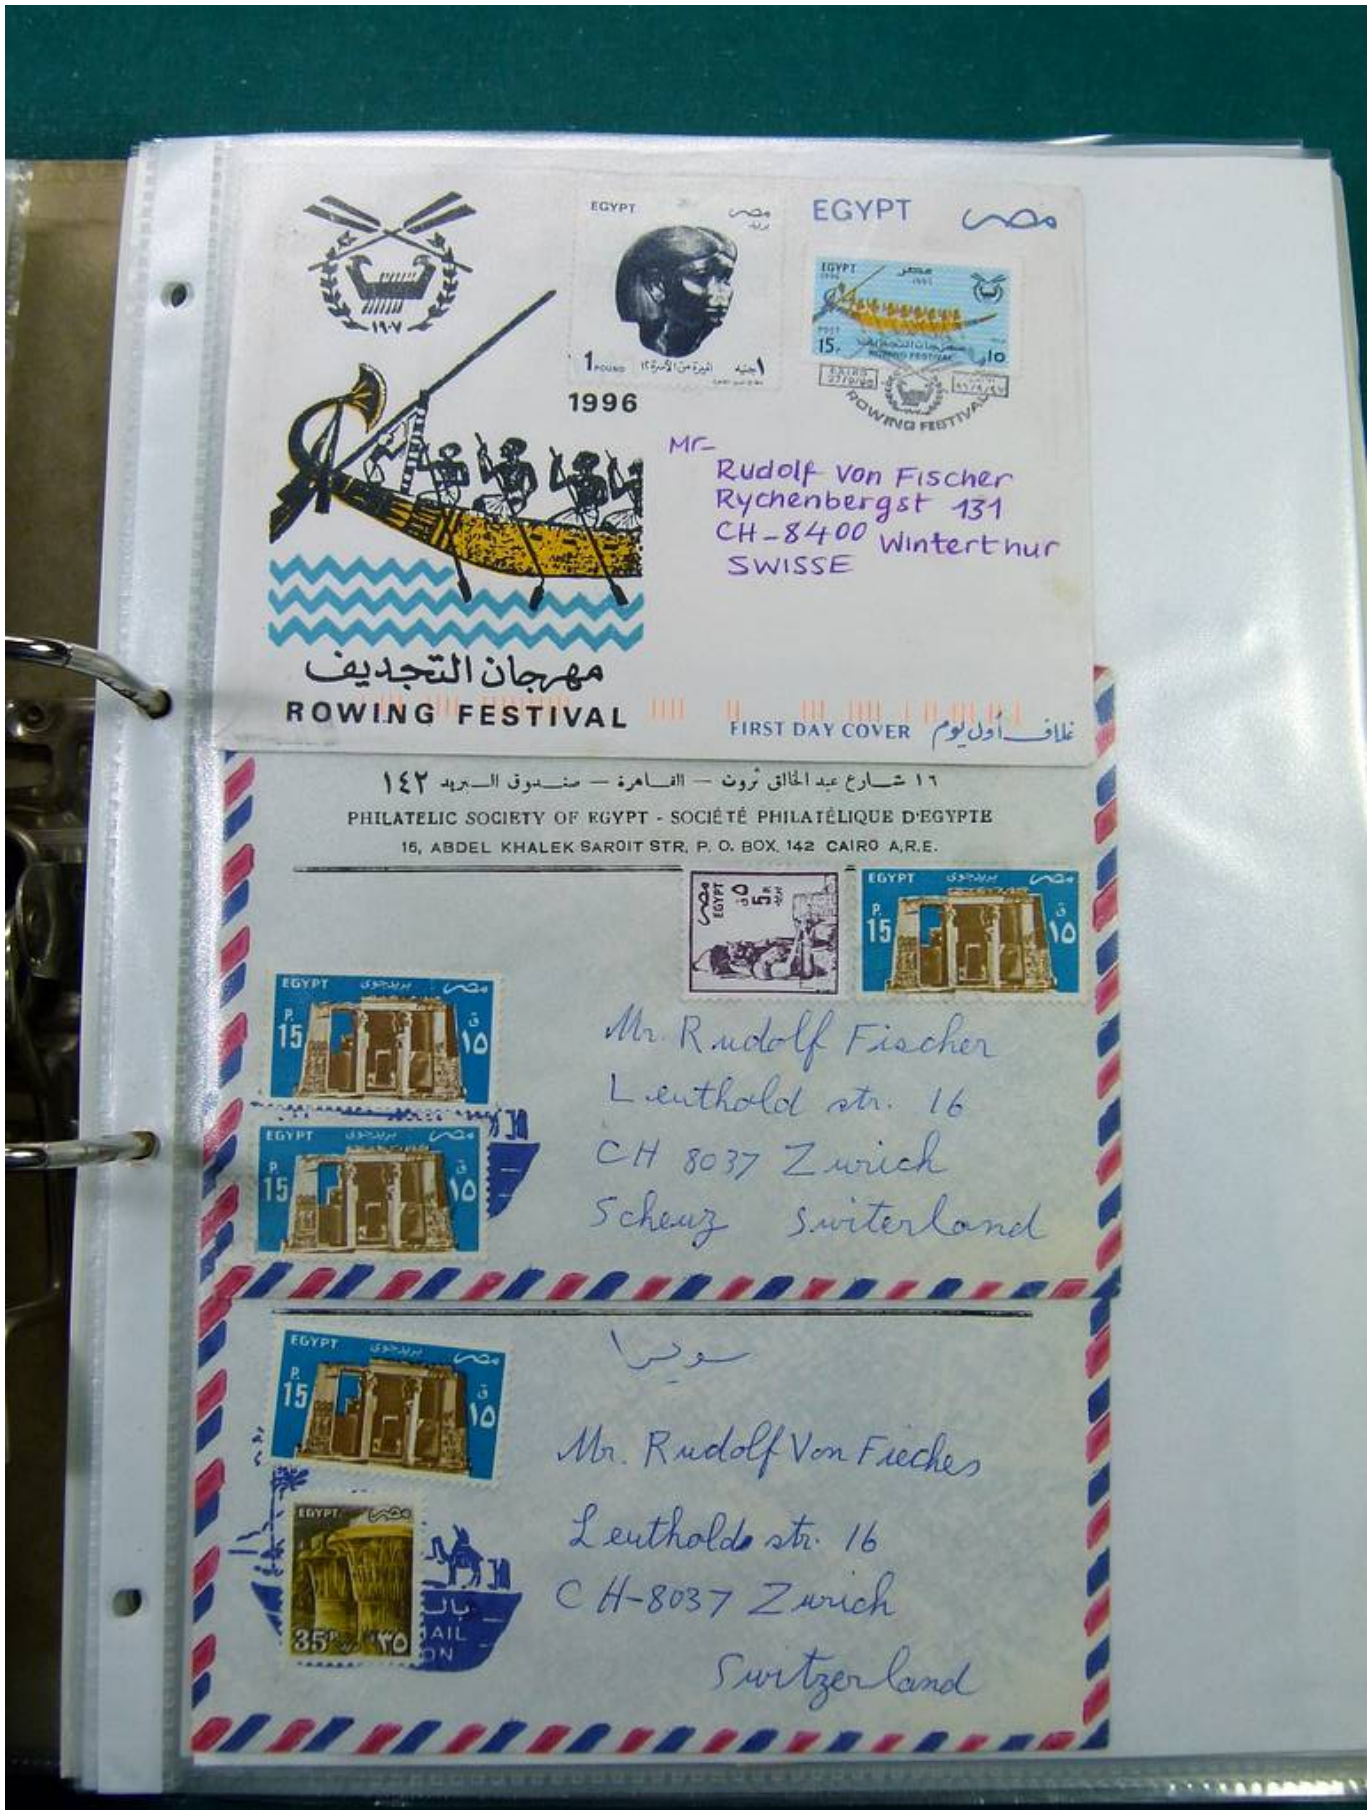 ١٩٠٧
EGYPT مصر
بريد
1 POUND أميرة من الأسرة ١٢ ١ جنيه
1996
EGYPT مصر
EGYPT مصر
1996 ١٩٩٦
POST
15P. مهرجان التجديف ١٥
ROWING FESTIVAL
CAIRO
27/9/96
ROWING FESTIVAL
Mr-
Rudolf Von Fischer
Rychenbergst 131
CH-8400 Winterthur
SWISSE
مهرجان التجديف
ROWING FESTIVAL
FIRST DAY COVER غلاف أول يوم
١٦ شارع عبد الخالق ثروت — القاهرة — صندوق البريد ١٤٢
PHILATELIC SOCIETY OF EGYPT - SOCIÉTÉ PHILATÉLIQUE D'EGYPTE
16, ABDEL KHALEK SAROIT STR, P. O. BOX, 142 CAIRO A.R.E.
مصر
EGYPT
٥ ق
5 P.
بريد
EGYPT بريد جوى مصر
P. 15 ق ١٥
EGYPT بريد جوى مصر
P. 15 ق ١٥
EGYPT بريد جوى مصر
P. 15 ق ١٥
Mr. Rudolf Fischer
Leuthold str. 16
CH 8037 Zurich
Scheuz Switerland
EGYPT بريد جوى مصر
P. 15 ق ١٥
سويسرا
EGYPT مصر
35P ٣٥
بال
MAIL
ON
Mr. Rudolf Von Fieches
Leuthold str. 16
CH-8037 Zurich
Switzerland